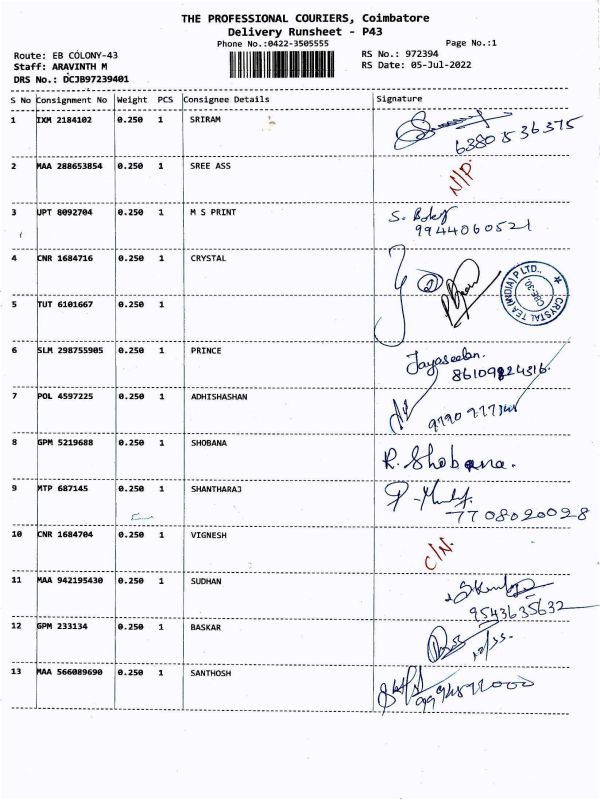 THE PROFESSIONAL COURIERS, Coimbatore
Delivery Runsheet - P43
Phone No.:0422-3505555
Page No.:1
Route: EB COLONY-43
RS No.: 972394
Staff: ARAVINTH M
RS Date: 05-Jul-2022
DRS No.: DCJB97239401
S No Consignment No Weight PCS Consignee Details Signature
1 IXM 2184102 0.250 1 SRIRAM
6380536375
2 MAA 288653854 0.250 1 SREE ASS N/P
3 UPT 8092704 0.250 1 M S PRINT
9944060521
4 CNR 1684716 0.250 1 CRYSTAL 2
CRYSTAL TEA (INDIA) P LTD., CBE-30
5 TUT 6101667 0.250 1
6 SLM 298755905 0.250 1 PRINCE Jayaseelan.
7 POL 4597225 0.250 1 ADHISHASHAN
8 GPM 5219688 0.250 1 SHOBANA R. Shobana.
9 MTP 687145 0.250 1 SHANTHARAJ
7708020028
10 CNR 1684704 0.250 1 VIGNESH C/N.
11 MAA 942195430 0.250 1 SUDHAN
9543635632
12 GPM 233134 0.250 1 BASKAR
13 MAA 566089690 0.250 1 SANTHOSH